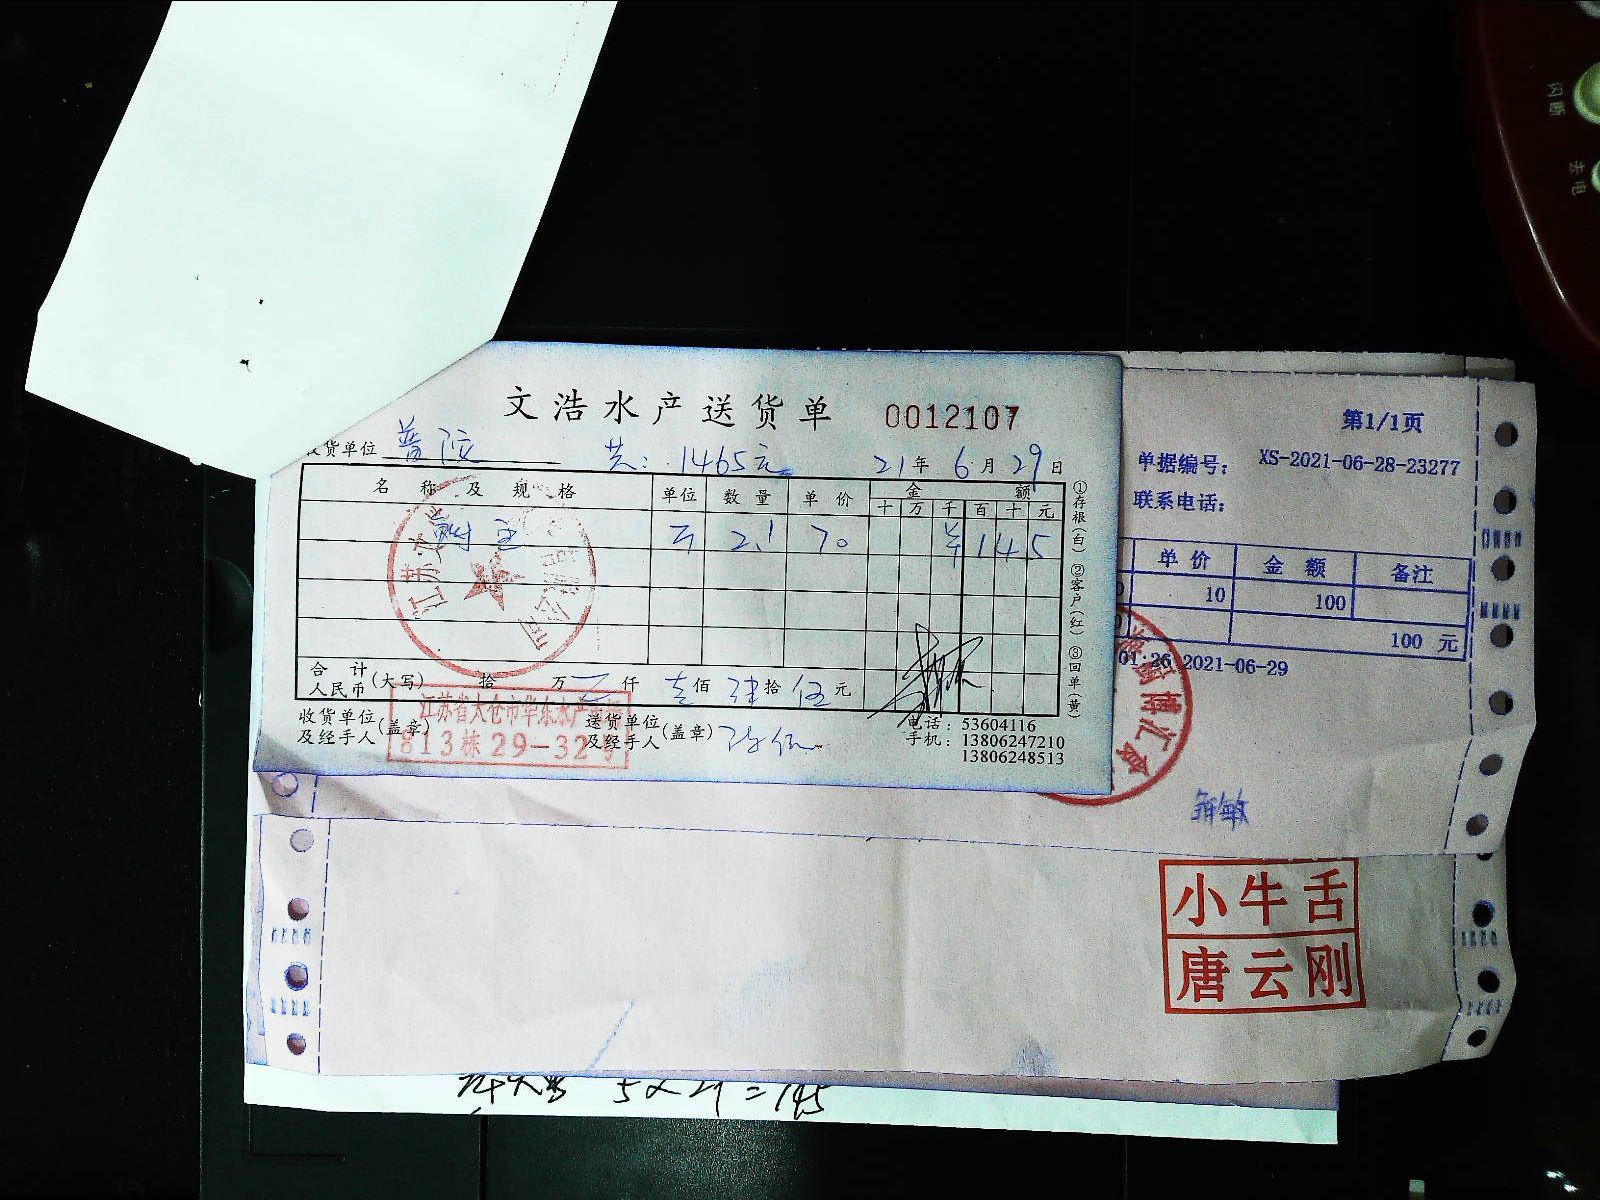 文浩水产送货单 0012107
收货单位 普陀 共:1465元 21年6月29日
名称及规格 单位 数量 单价 金额
十万千百十元
2.1 70 ¥145
合计人民币(大写) 拾 万 仟 壹佰 肆拾 伍元
收货单位及经手人(盖章) 送货单位及经手人(盖章)
电话:53604116
手机:13806247210
13806248513
①存根(白) ②客户(红) ③回单(黄)
江苏省太仓市华东水产
813栋29-32号
第1/1页
单据编号: XS-2021-06-28-23277
联系电话:
单价 金额 备注
10 100
100 元
01:26 2021-06-29
小牛舌
唐云刚
闪断
去电